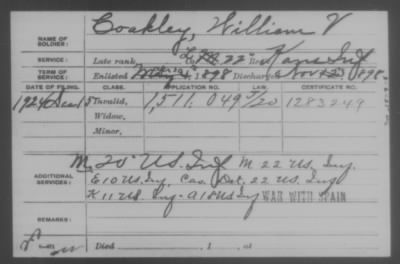 NAME OF SOLDIER: Coakley, William V
SERVICE: Late rank, 22" Kans Inf
TERM OF SERVICE: Enlisted May 1898 Discharged Nov 1898
DATE OF FILING. CLASS. APPLICATION NO. LAW. CERTIFICATE NO.
1924 Dec 15 Invalid, 1,511.049 5/20 1283249
Widow,
Minor,
M. 20" U.S. Inf M 22 U.S. Inf.
ADDITIONAL SERVICES: E 10 U.S. Inf, Cas. Det. 22 U.S. Inf
K 11 U.S. Inf - A 18 U.S. Inf WAR WITH SPAIN
REMARKS:
Died , 1 , at